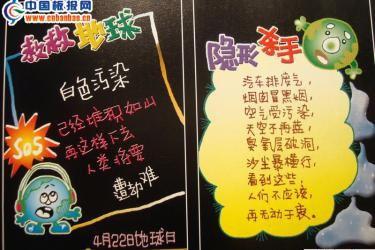 中国板报网
www.cnbanbao.cn
救救地球
白色污染
已经堆积如山
再这样下去
人类将要
遭劫难
SOS
4月22日地球日
隐形杀手
汽车排废气，
烟囱冒黑烟，
空气受污染，
天空不再蓝，
臭氧层破洞，
沙尘暴横行，
看到这些，
人们不应该，
再无动于衷。